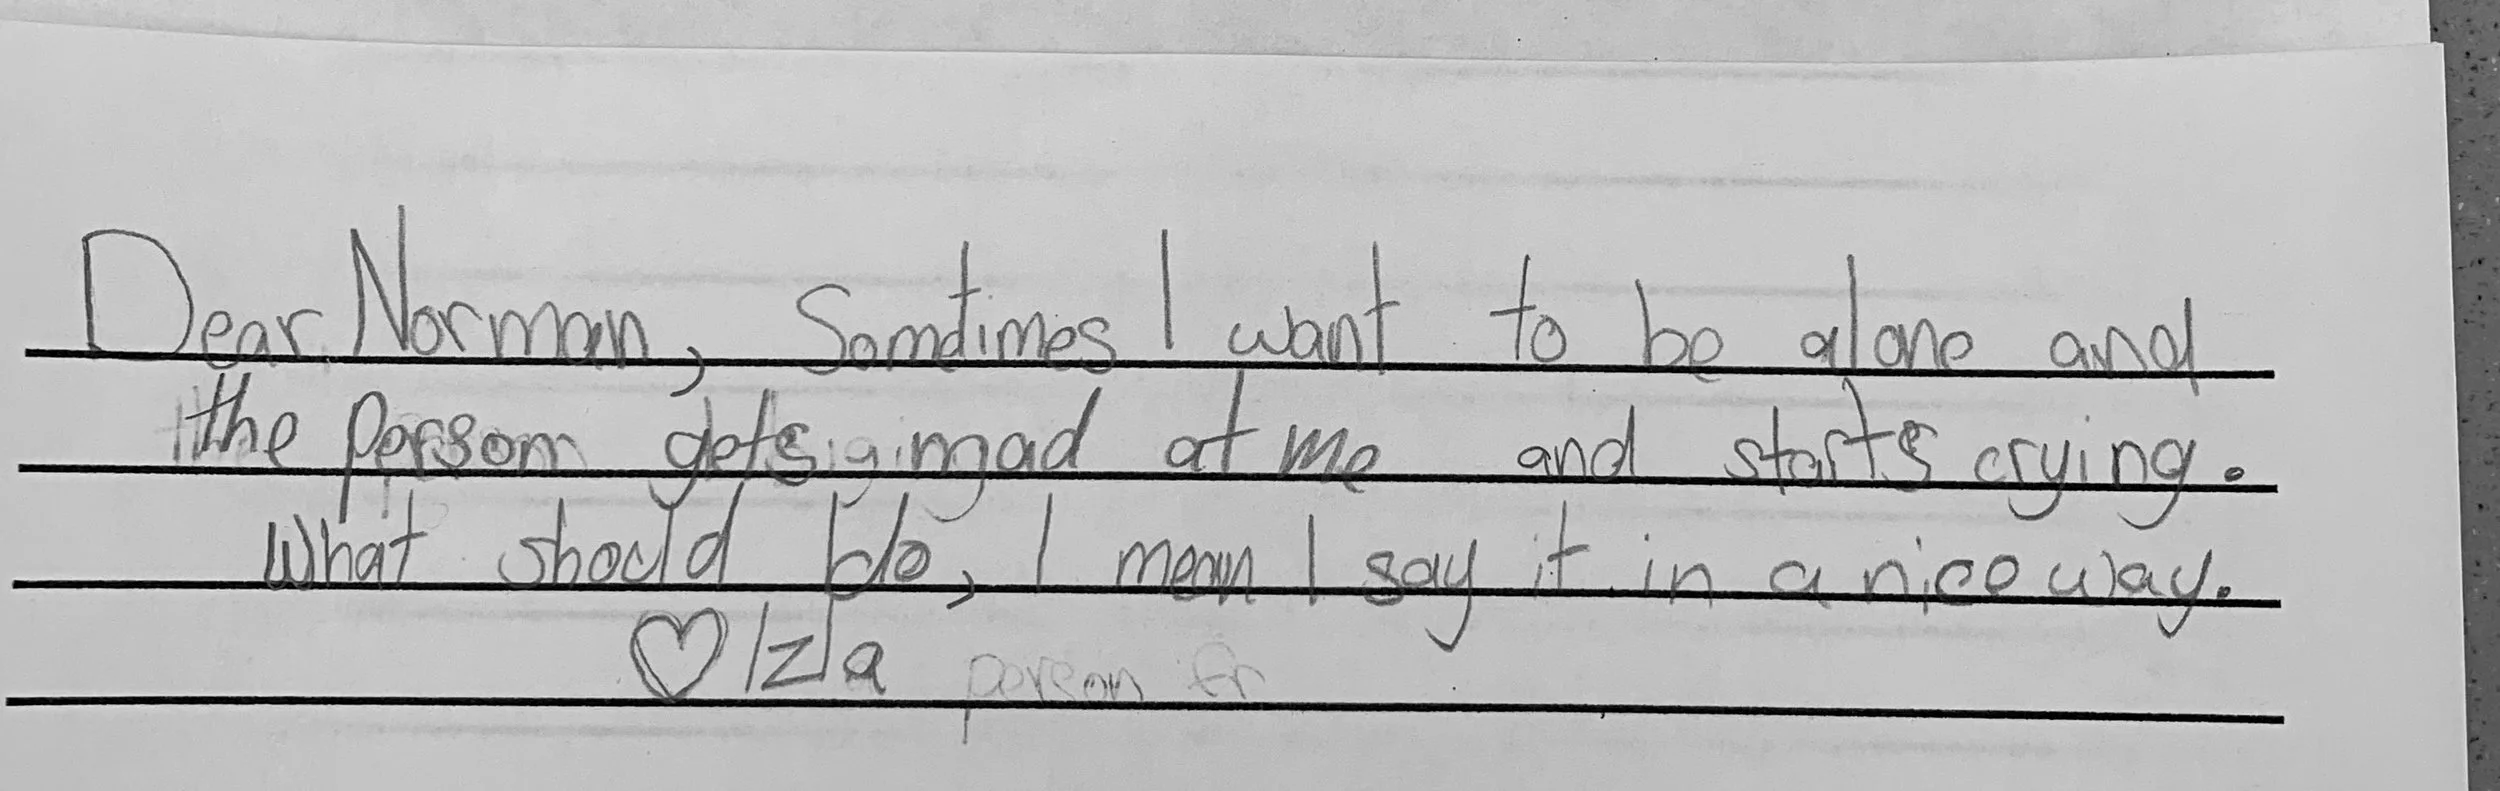 Dear Norman, Somdtimes I want to be alone and
the person gets mad at me and starts crying.
What should I do, I mean I say it in a nice way.
♡ Izla person fr